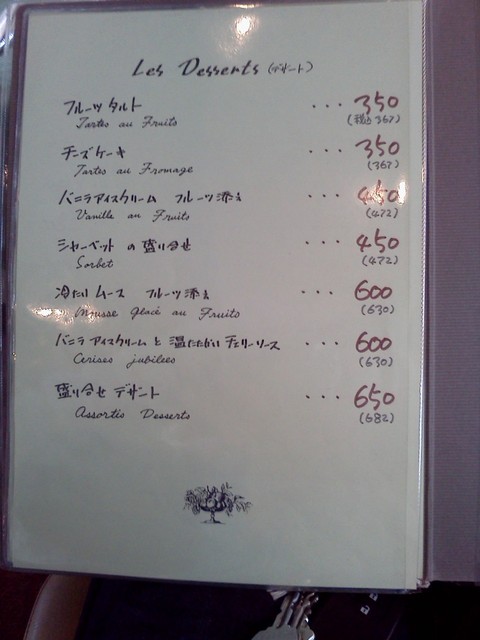 Les Desserts (デザート)
フルーツ タルト ・・・ 350
Tartes au Fruits (税込 367)
チーズ ケーキ ・・・ 350
Tartes au Fromage (367)
バニラ アイスクリーム フルーツ 添え ・・・ 450
Vanille au Fruits (472)
シャーベット の 盛り合せ ・・・ 450
Sorbet (472)
冷たい ムース フルーツ 添え ・・・ 600
Mousse glacé au Fruits (630)
バニラ アイスクリーム と 温たたかい チェリーソース ・・・ 600
Cerises jubilees (630)
盛り合せ デザート ・・・ 650
Assortis Desserts (682)